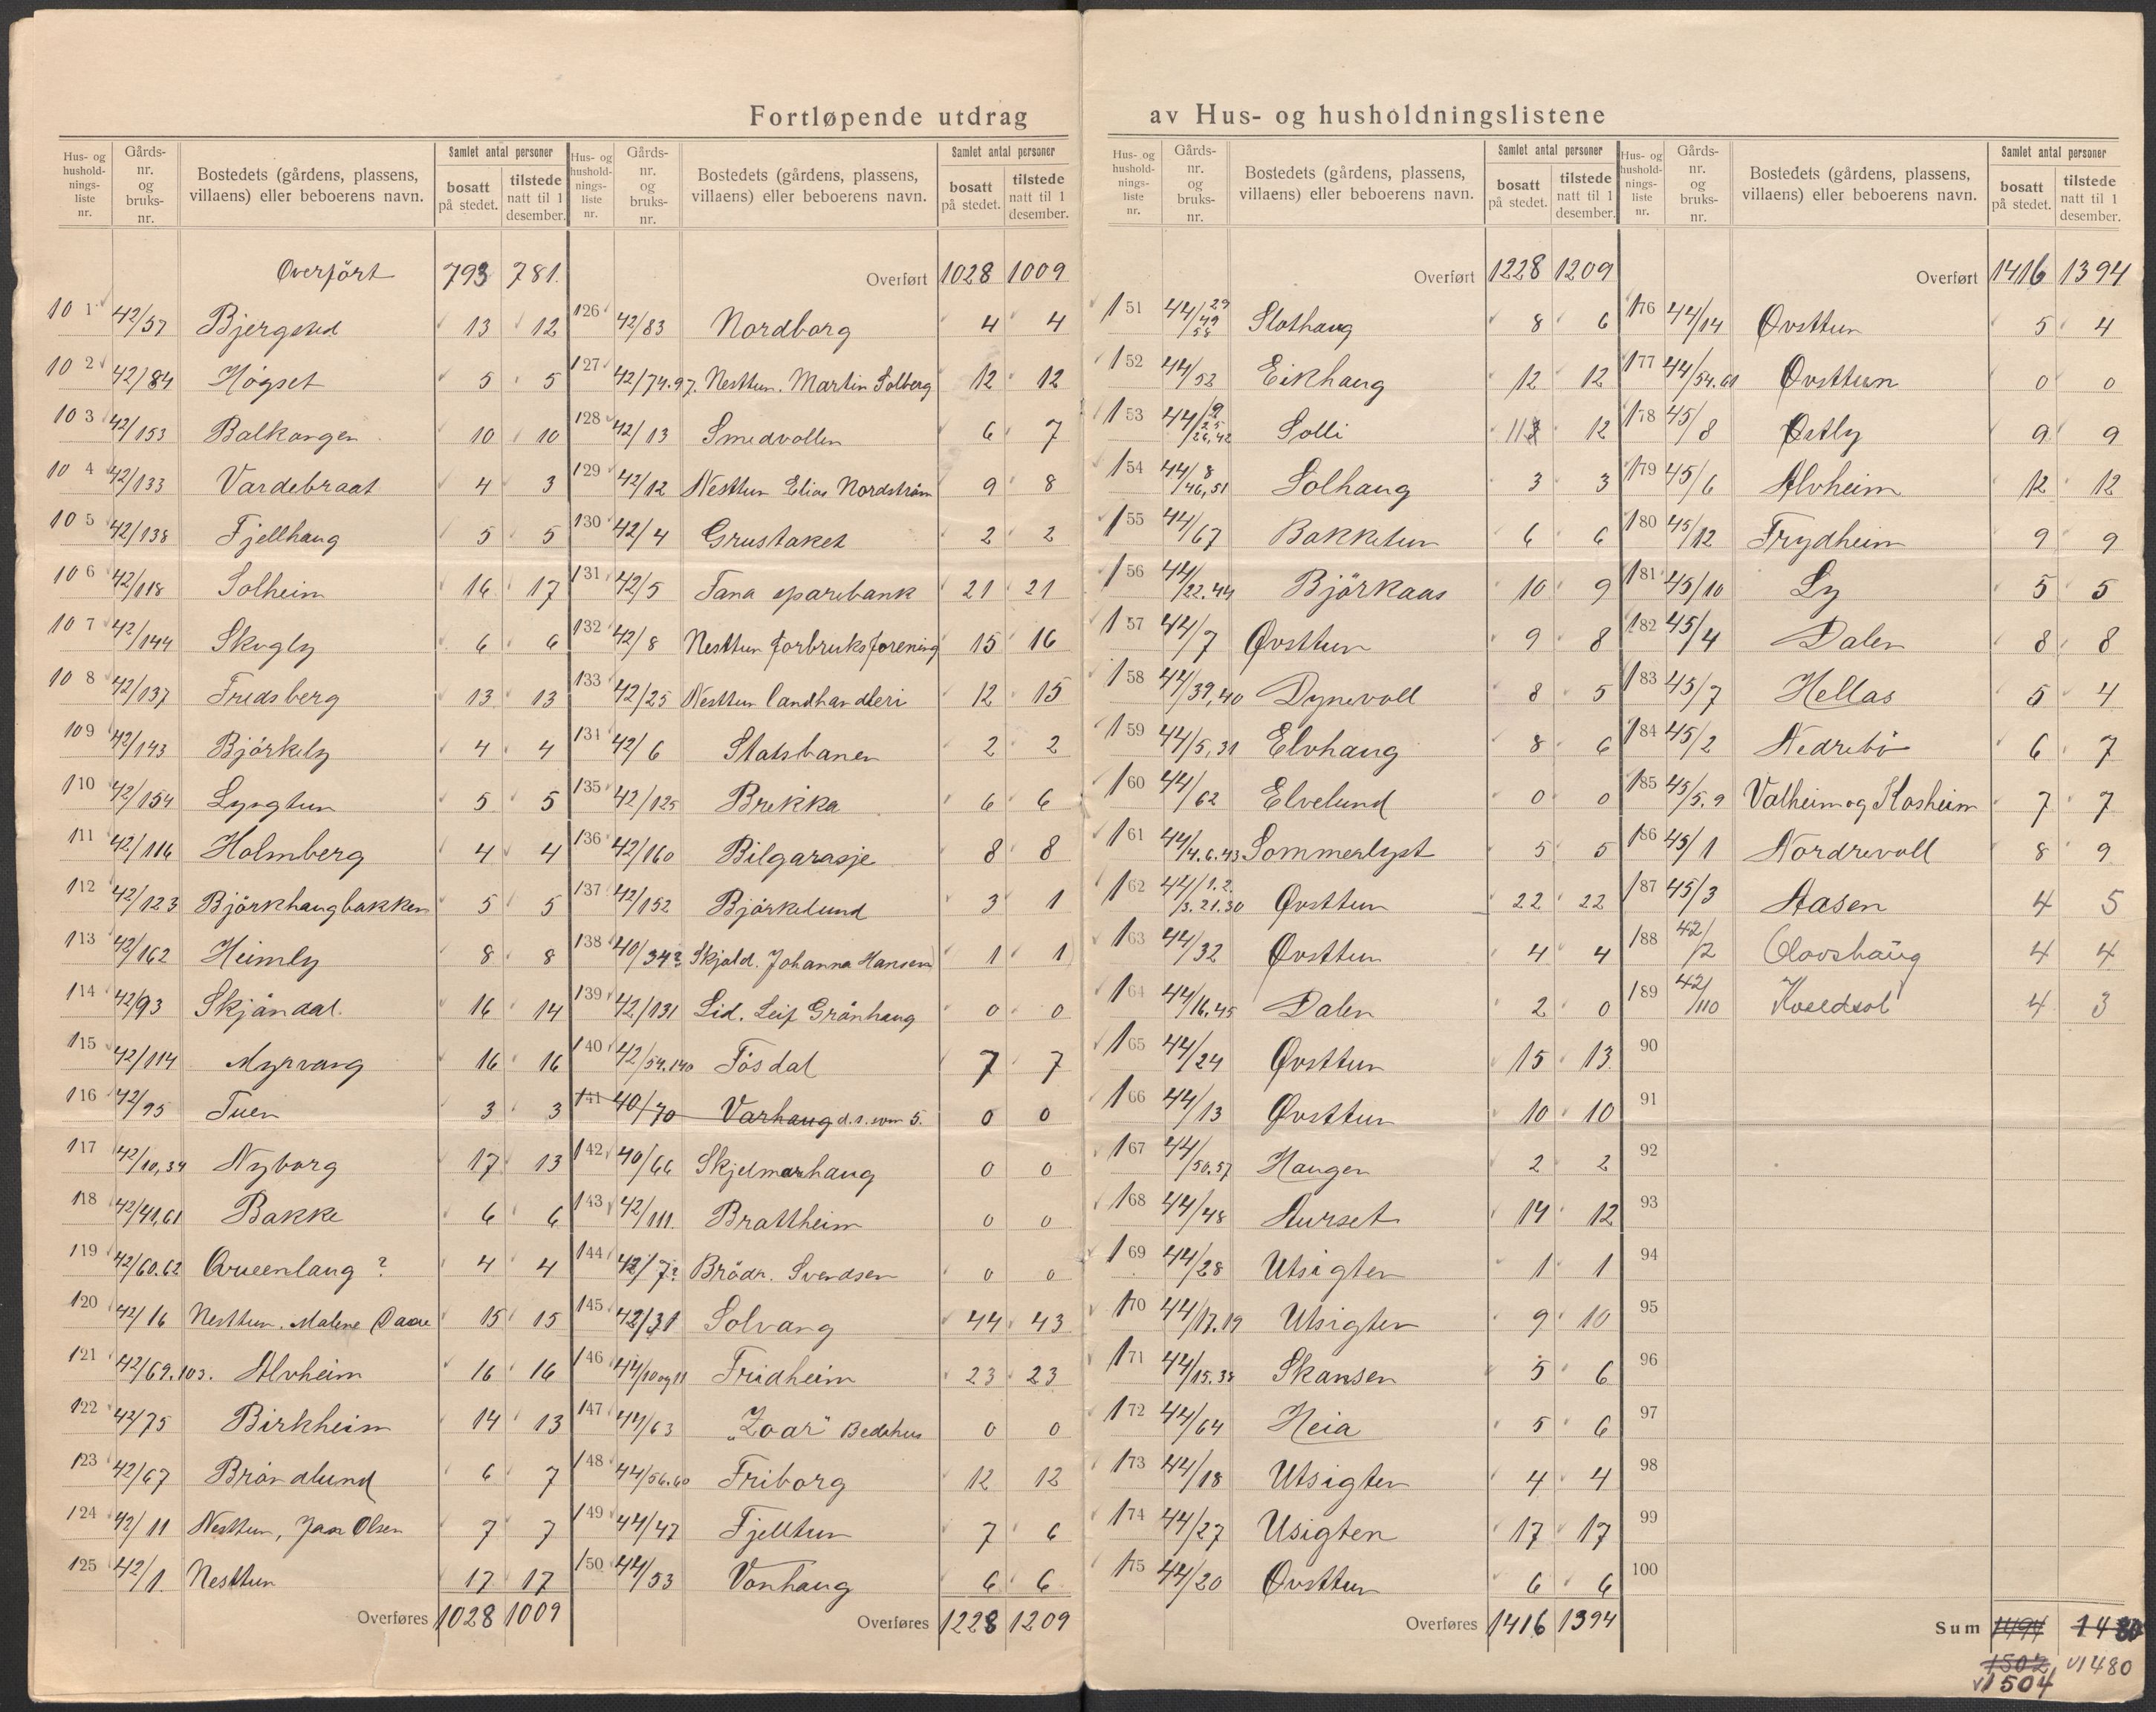 Fortløpende utdrag av Hus- og husholdningslistene
Hus- og hushold- nings- liste nr. | Gårds- nr. og bruks- nr. | Bostedets (gårdens, plassens, villaens) eller beboerens navn. | Samlet antal personer | bosatt på stedet. | tilstede natt til 1 desember.
Overført 793 781
101 42/57 Bjergsted 13 12
102 42/84 Høgset 5 5
103 42/153 Balkongen 10 10
104 42/133 Vardebraat 4 3
105 42/138 Fjellhaug 5 5
106 42/118 Solheim 16 17
107 42/144 Skogly 6 6
108 42/137 Fredsberg 13 13
109 42/143 Björkely 4 4
110 42/154 Lyngtun 5 5
111 42/116 Holmberg 4 4
112 42/123 Björkhaugbakken 5 5
113 42/162 Heimly 8 8
114 42/93 Skjöndal. 16 14
115 42/114 Myrvang 16 16
116 42/95 Tuen 3 3
117 42/10,34 Nyborg 17 13
118 42/41,61 Bakke 6 6
119 42/60.62 Queenlang ? 4 4
120 42/16 Nesttun. Malene Daae 15 15
121 42/69.103. Alvheim 16 16
122 42/75 Birkheim 14 13
123 42/67 Bröndlund 6 7
124 42/11 Nesttun, Jan Olsen 7 7
125 42/1. Nesttun 17 17
Overføres 1028 1009
Hus- og hushold- nings- liste nr. | Gårds- nr. og bruks- nr. | Bostedets (gårdens, plassens, villaens) eller beboerens navn. | Samlet antal personer | bosatt på stedet. | tilstede natt til 1 desember.
Overført 1028 1009
126 42/83 Nordborg 4 4
127 42/74.97. Nesttun. Martin Solberg 12 12
128 42/13 Smedvollen 6 7
129 42/12 Nesttun Elias Nordström 9 8
130 42/4 Grustaket 2 2
131 42/5 Fana sparebank 21 21
132 42/8 Nesttun forbruksforening 15 16
133 42/25 Nesttun landhandleri 12 15
134 42/6 Statsbanen 2 2
135 42/125 Brekka 6 6
136 42/160 Bilgarasje 8 8
137 42/152 Björkelund 3 1
138 40/34? Skjold. Johanna Hansen 1 1
139 42/131 Lid. Leif Grönhaug 0 0
140 42/54.140 Fösdal 7 7
141 40/70 Varhaug d.s. som 5. 0 0
142 40/66 Skjelmarhaug 0 0
143 42/111. Brattheim 0 0
144 42/7? Brödr. Svendsen 0 0
145 42/31 Solvang 44 43
146 44/10 og 11 Fridheim 23 23
147 44/63 "Zoar" Bedehus 0 0
148 44/56.60 Friborg 12 12
149 44/47 Fjelltun 7 6
150 44/53 Vonhaug 6 6
Overføres 1228 1209
Hus- og hushold- nings- liste nr. | Gårds- nr. og bruks- nr. | Bostedets (gårdens, plassens, villaens) eller beboerens navn. | Samlet antal personer | bosatt på stedet. | tilstede natt til 1 desember.
Overført 1228 1209
151 44/29 /49 58 Slothaug 8 6
152 44/52 Eikhaug 12 12
153 44/9 25 /26,42 Solli 12
154 44/8 /46,51 Solhaug 3 3
155 44/67 Bakketun 6 6
156 44/22.44 Björkaas 10 9
157 44/7 Øvsttun 9 8
158 44/39,40 Dynevoll 8 5
159 44/5,31 Elvhaug 8 6
160 44/62 Elvelund 0 0
161 44/4.6.43 Sommerlyst 5 5
162 44/1.2. /3.21.30 Øvsttun 22 22
163 44/32 Øvsttun 4 4
164 44/16,45 Dalen 2 0
165 44/24 Øvsttun 15 13
166 44/13 Øvsttun 10 10
167 44/50.57 Haugen 2 2
168 44/48 Aurset 14 12
169 44/28 Utsigten 1 1
170 44/17.19 Utsigten 9 10
171 44/15.38 Skansen 5 6
172 44/64 Heia 5 6
173 44/18 Utsigten 4 4
174 44/27 Usigten 17 17
175 44/20 Øvsttun 6 6
Overføres 1416 1394
Hus- og hushold- nings- liste nr. | Gårds- nr. og bruks- nr. | Bostedets (gårdens, plassens, villaens) eller beboerens navn. | Samlet antal personer | bosatt på stedet. | tilstede natt til 1 desember.
Overført 1416 1394
176 44/14 Øvsttun 5 4
177 44/54.61 Øvsttun 0 0
178 45/8 Østly 9 9
179 45/6 Alvheim 12 12
180 45/12 Frydheim 9 9
181 45/10 Ly 5 5
182 45/4 Dalen 8 8
183 45/7 Hellas 5 4
184 45/2 Nedrebö 6 7
185 45/5.9 Valheim og Klosheim 7 7
186 45/1 Nordrevoll 8 9
187 45/3 Aasen 4 5
188 42/2 Olavshaüg 4 4
189 42/110 Kveldsol 4 3
90
91
92
93
94
95
96
97
98
99
100
Sum 1494 1480
1502 1480
1504